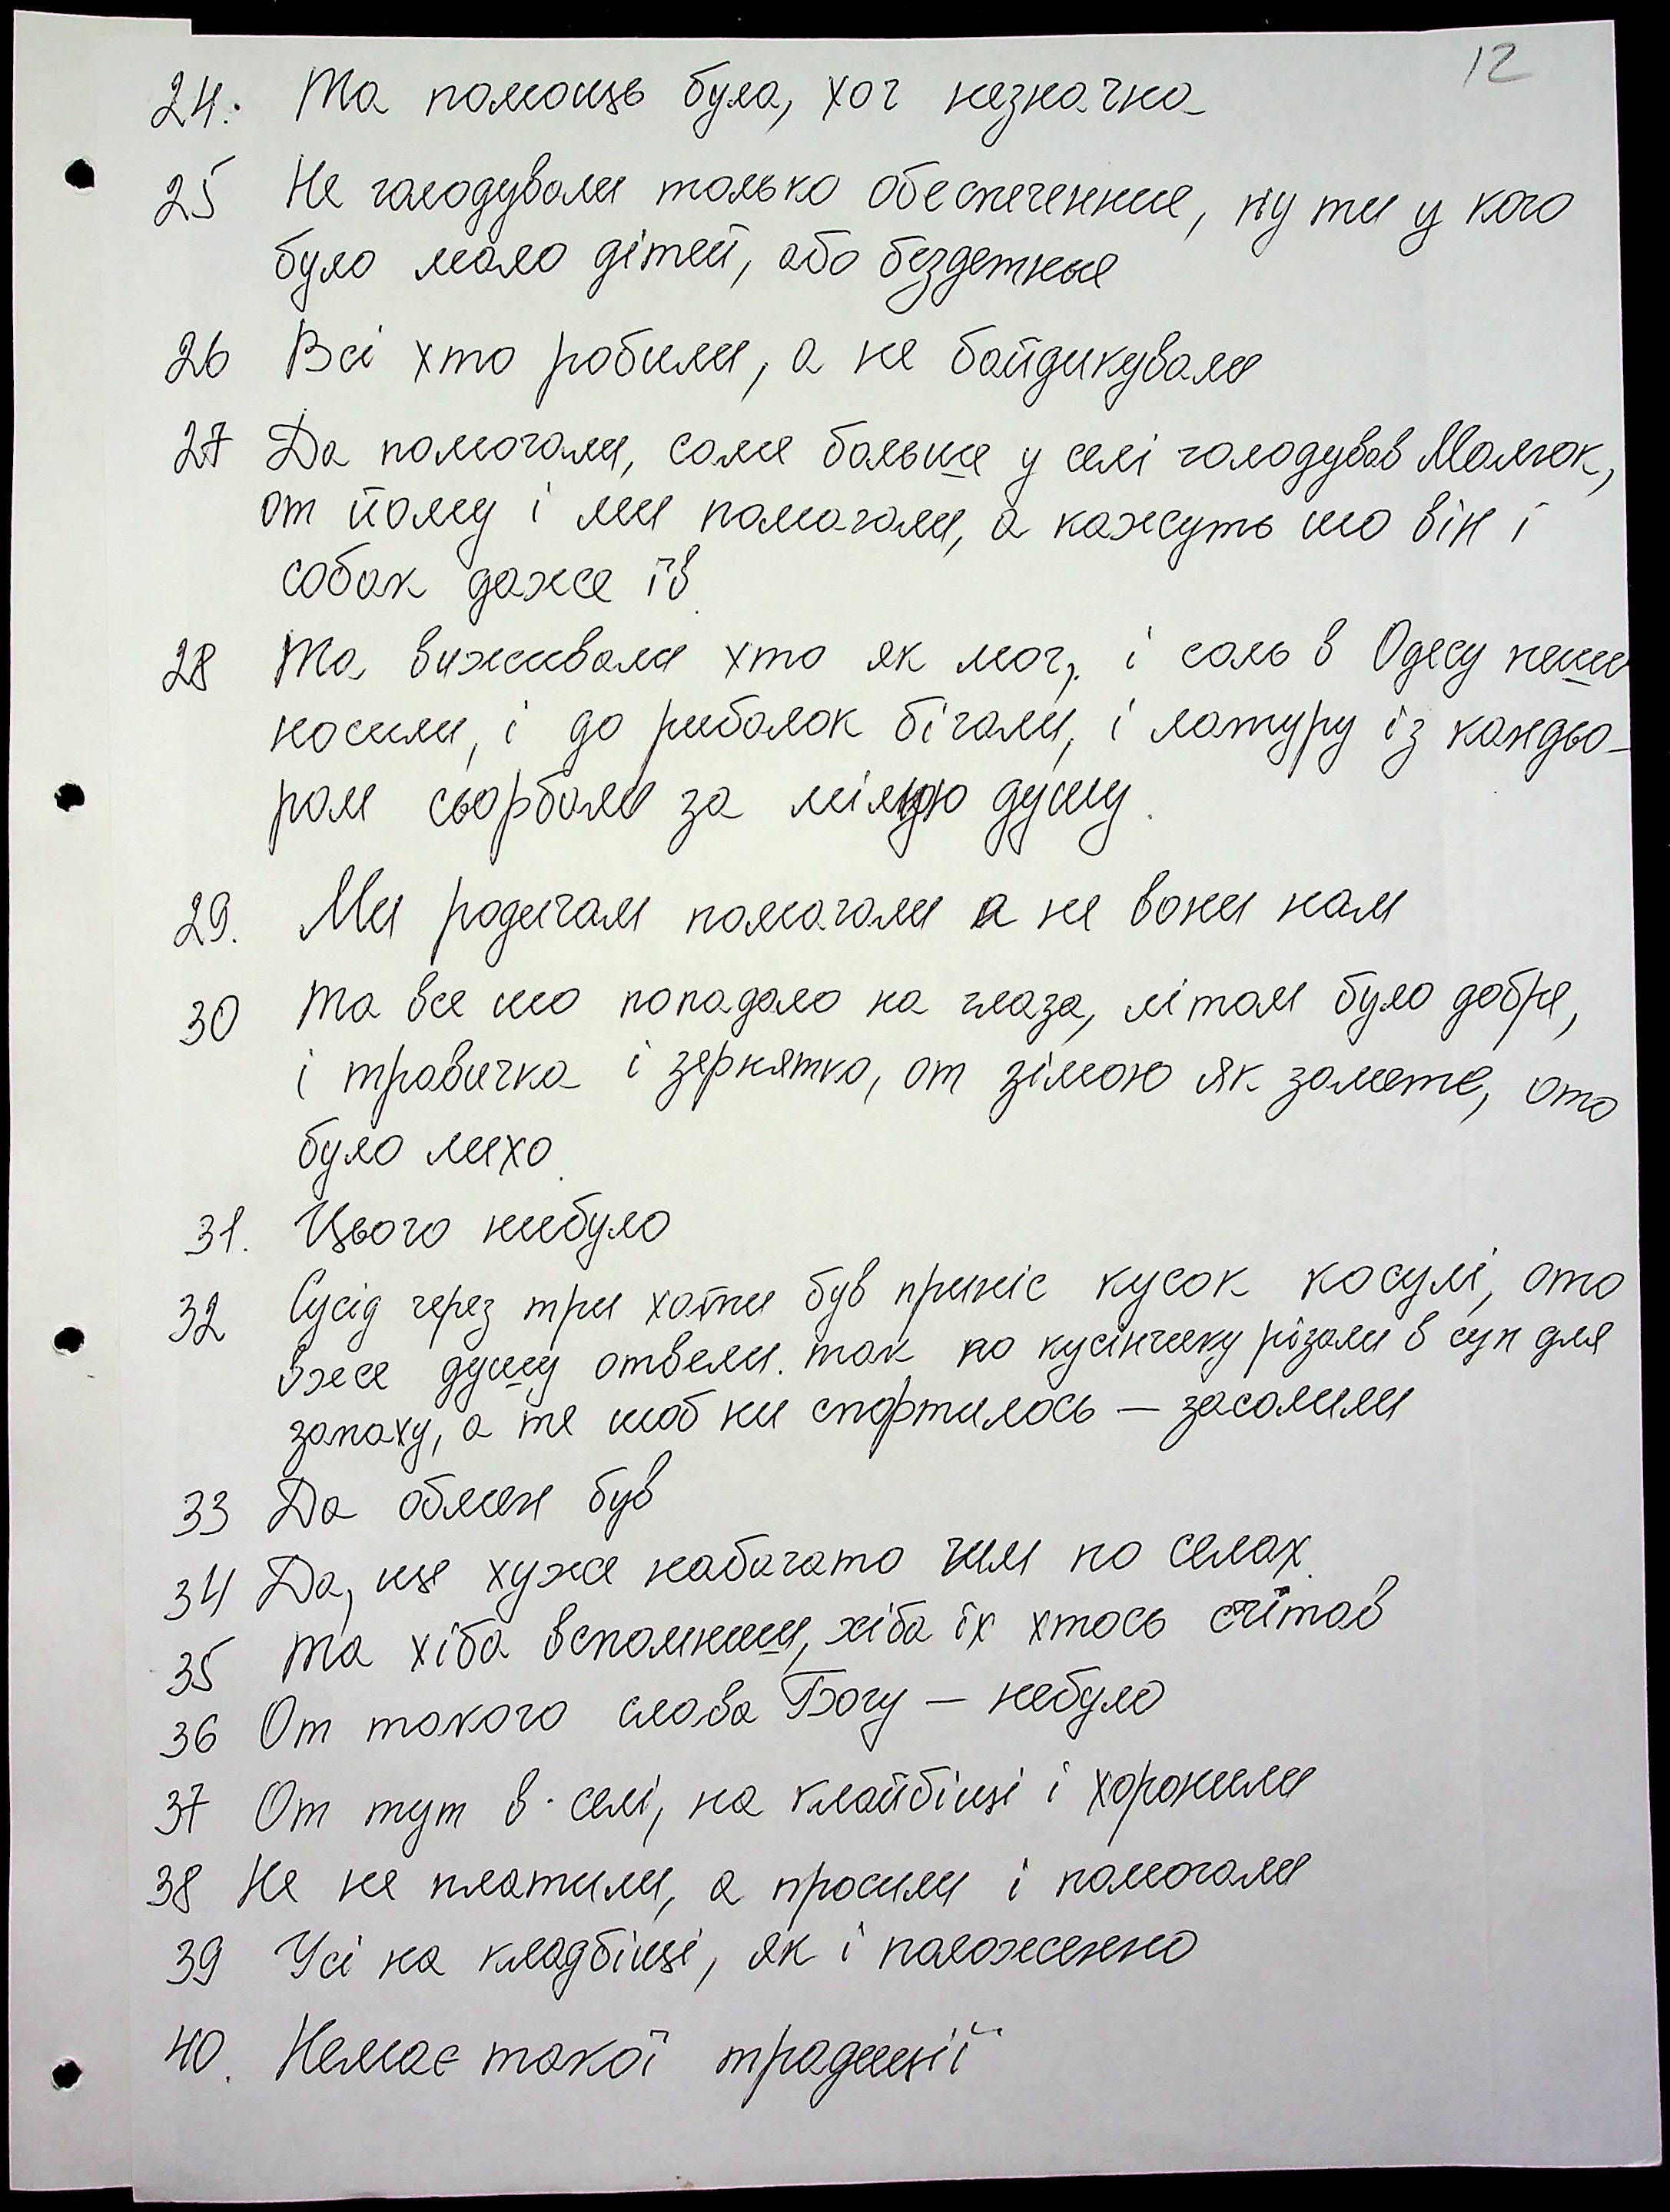 12
24. Та помощь була, хоч незначна
25 Не голодували только обеспеченние, ну ти у кого
було мало дітей, або бездетные
26 Всі хто робили, а не байдикували
27 Да помогали, саме больше у селі голодував Малюк,
от йому і ми помагали, а кажуть шо він і
собак даже їв.
28 Та виживали хто як мог, і соль в Одесу пеши
носили, і до рибалок бігали, і латуру із кандьо-
ром сьорбали за мілую душу.
29. Ми родичам помагали а не вони нам
30 Та все шо попадало на глаза, літом було добре,
і травичка і зернятко, от зімою як замете, ото
було лихо.
31. Цього небуло
32 Сусід через три хати був приніс кусок косулі, ото
вже душу отвели. так по кусінчику різали в суп для
запаху, а те шоб ни спортилось — засолили
33 Да обмен був
34 Да, ще хуже набагато чим по селах.
35 Та хіба вспомниш, хіба їх хтось считав
36 От такого слава Богу — небуло
37 От тут в селі, на клайбіщі і хоронили
38 Не не платили, а просили і помогали
39 Усі на кладбіщі, як і положенно
40. Немає такої традиції